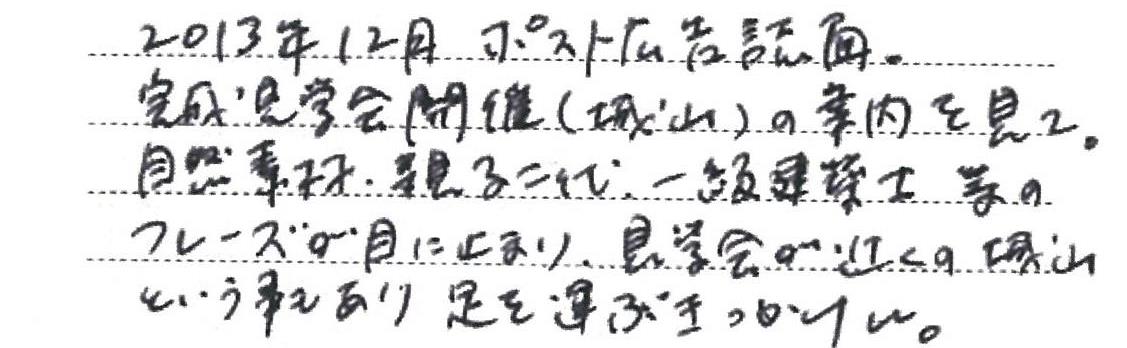 2013年12月 ポスト広告誌面。
完成見学会開催(城山)の案内を見て。
自然素材・親子二代、一級建築士 等の
フレーズが目に止まり、見学会が近くの城山
という事もあり 足を運ぶきっかけに。